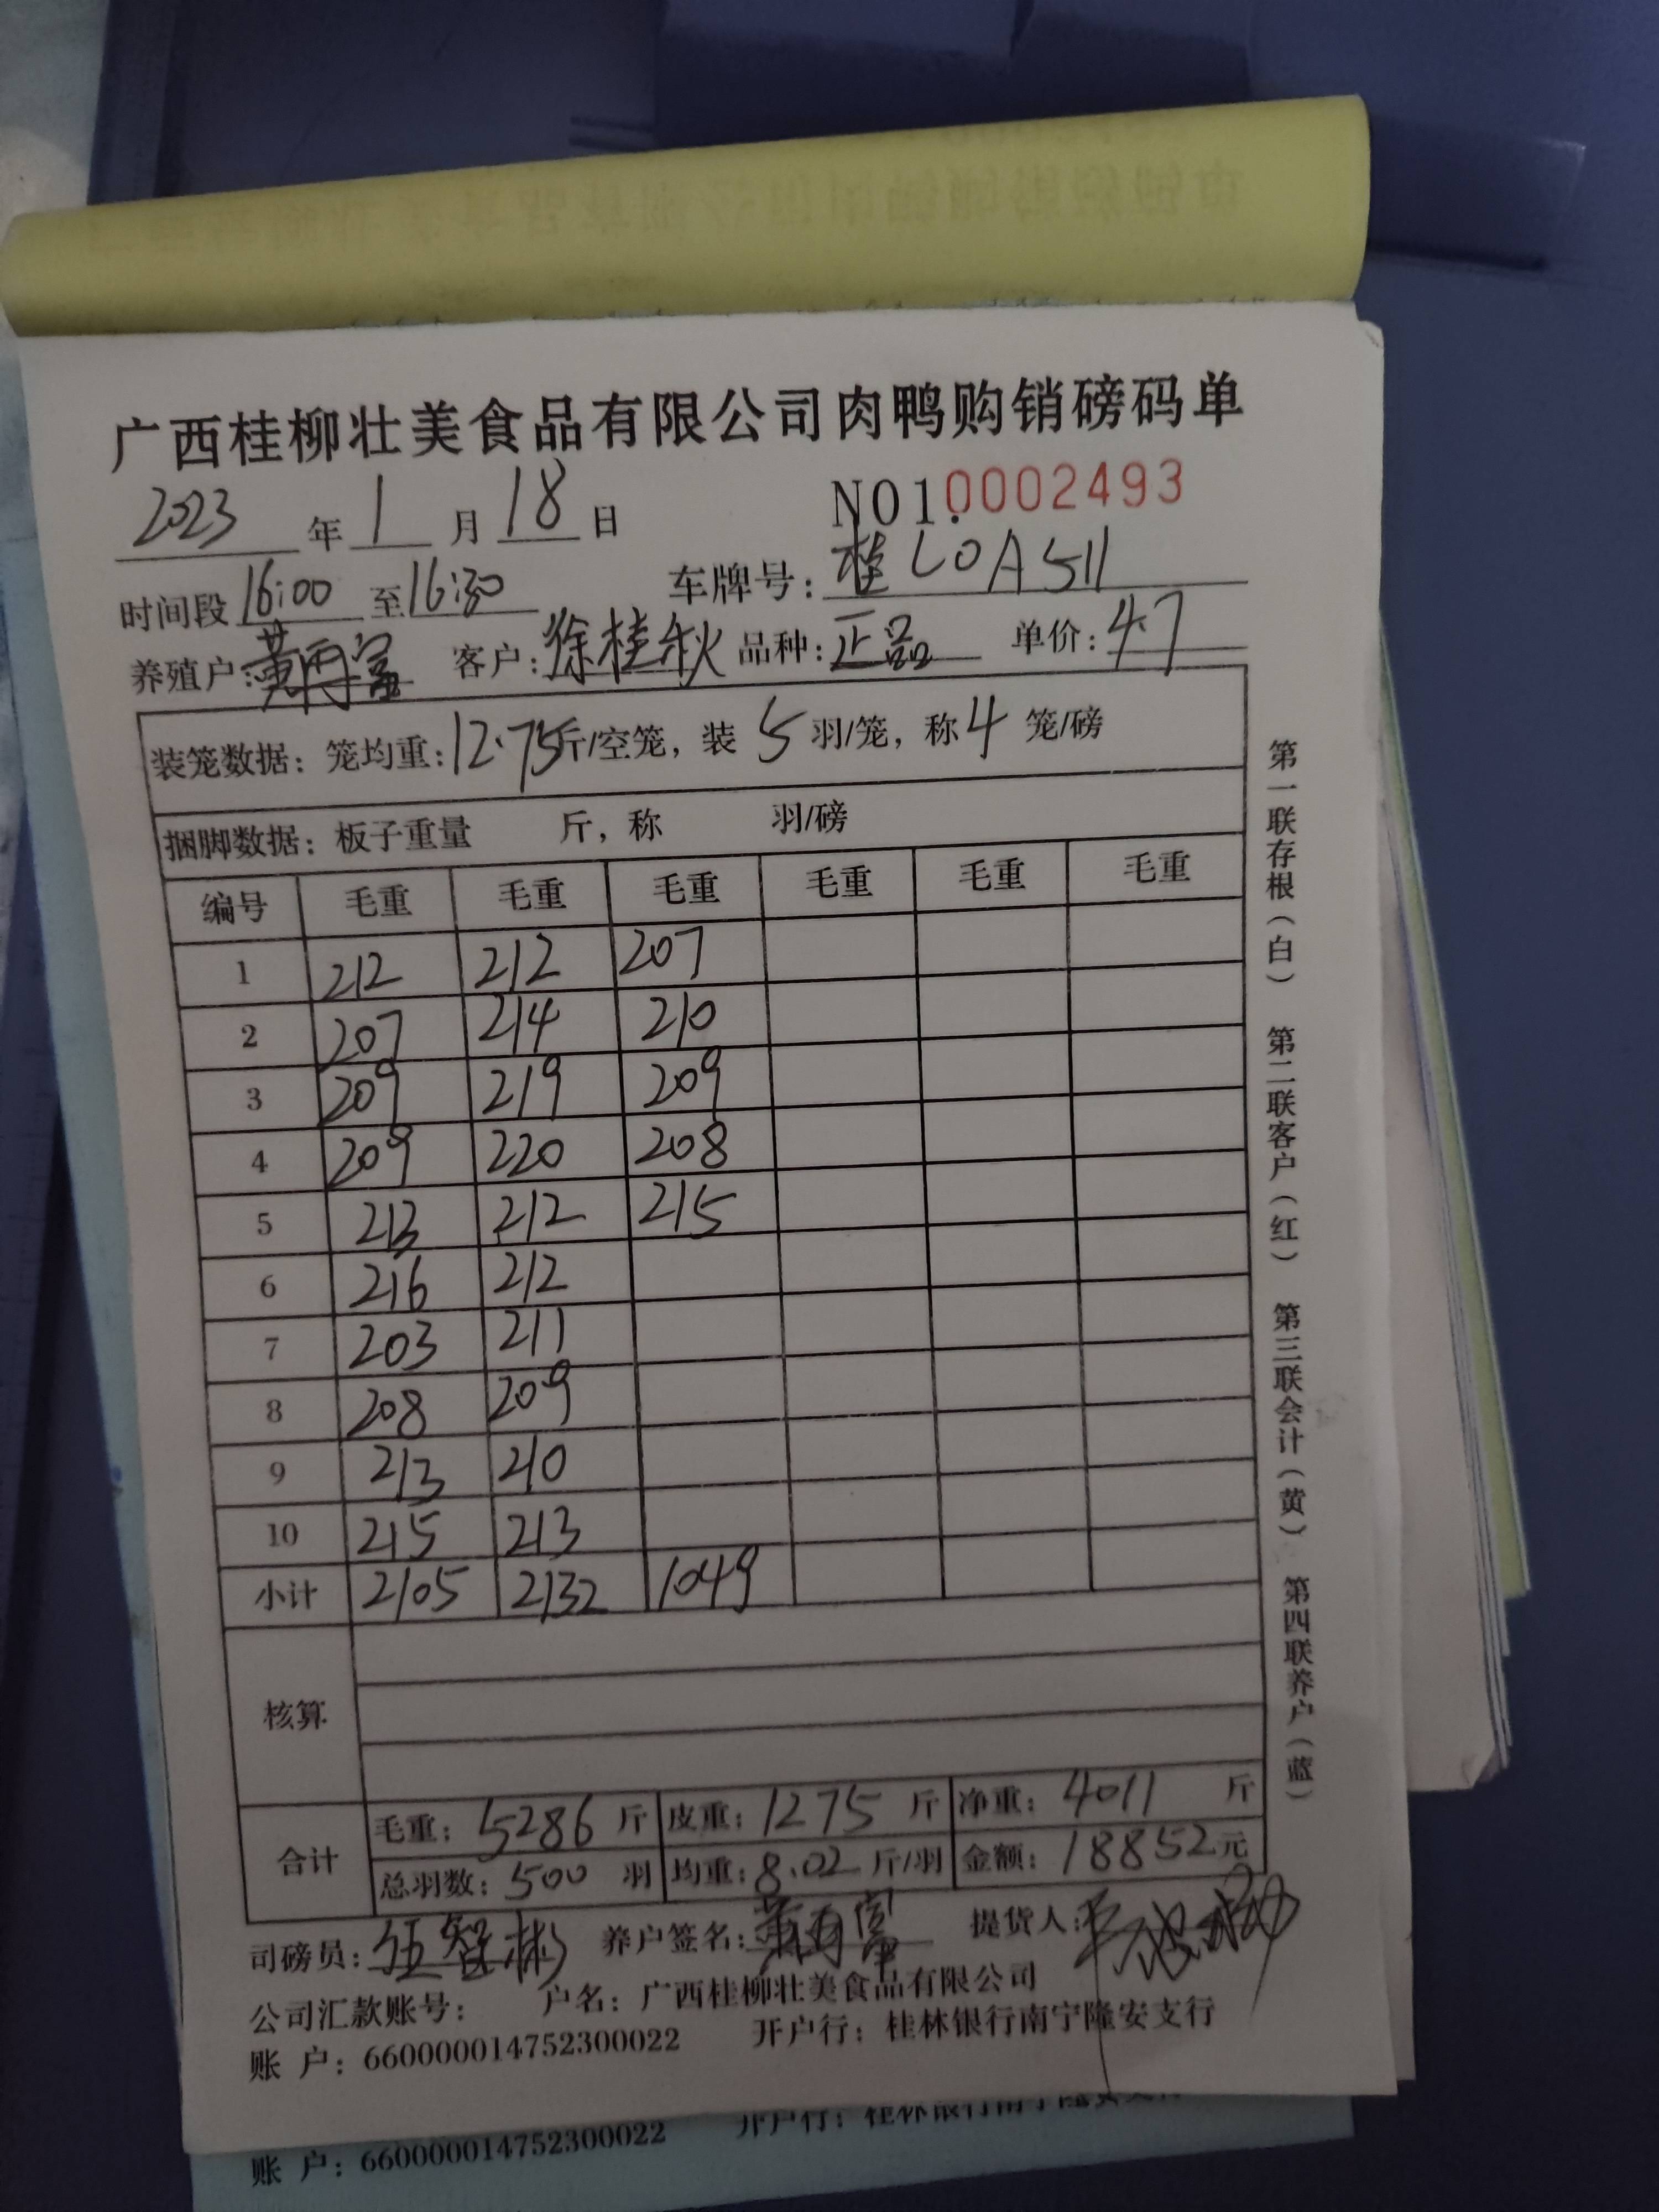 广西桂柳壮美食品有限公司肉鸭购销磅码单
2023 年 1 月 18 日 NO1.0002493
时间段 16:00 至 16:30 车牌号: 桂L0A511
养殖户: 黄再富 客户: 徐桂秋 品种: 正品 单价: 4.7
装笼数据: 笼均重: 12.75 斤/空笼, 装 5 羽/笼, 称 4 笼/磅
捆脚数据: 板子重量 斤, 称 羽/磅
编号 毛重 毛重 毛重 毛重 毛重 毛重
1 212 212 207
2 207 214 210
3 209 219 209
4 209 220 208
5 213 212 215
6 216 212
7 203 211
8 208 209
9 213 210
10 215 213
小计 2105 2132 1049
核算
合计
毛重: 5286 斤 皮重: 1275 斤 净重: 4011 斤
总羽数: 500 羽 均重: 8.02 斤/羽 金额: 18852 元
司磅员: 伍智彬 养户签名: 黄再富 提货人:
公司汇款账号: 户名: 广西桂柳壮美食品有限公司
账 户: 660000014752300022 开户行: 桂林银行南宁隆安支行
第一联存根(白) 第二联客户(红) 第三联会计(黄) 第四联养户(蓝)
账 户: 660000014752300022 开户行: